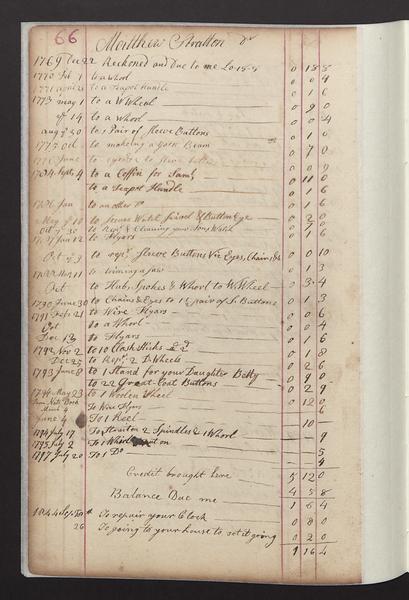 66 Matthew Stratton Dr
1769 Dec 22 Reckoned and Due to me £0-15-8 0 15 8
1770 Feb 1 to a whorl 0 0 4
1771 april to a Teapot Handle 0 1 6
1773 may 1 to a W Wheel 0 9 0
14 to a whorl 0 0 4
aug 30 to 1 Pair of Sleeve Buttons 0 1 6
Oct to makeing a Yarn Beam 0 7 0
June to
Sept 4 to a Coffin for Saml 0 11 0
to a Teapot Handle 0 1 6
Jan to another Do 0 1 6
May 10 to Watch & Button Eye 0 2 0
Oct 30 to Repg & Cleaning your Sons Watch 0 7
Jan 12 to Flyars 0 1 6
Oct 23 to repg Sleeve Buttons Viz Eyes, Chains &c 0 0 10
May 11 to triming a Saw 0 1 3
Oct to Hub, Spokes & Whorl to W Wheel 0 3 4
1790 June 30 to Chains & Eyes to 1½ pair of Sl Buttons 0 1 3
1791 Feb 21 to Wire Flyars 0 0 6
Oct to a Whorl 0 0 4
Dec 13 to Flyars 0 1 6
1792 Nov 2 to 10 Clock Sticks 2d 0 1 8
Dec 25 to Repg 2 D: Wheels 0 2 6
1793 June 8 to 1 Stand for your Daughter Betty 0 9 0
to 22 Great-Coat Buttons 0 2 9
1794 May 23 to 1 Woolen Wheel 0 12 0
Note Book To Wire Flyars 6
June 4 To 1 Reel 10
1794 July 17 To 2 Spindles & 1 Whorl 9
1795 July 2 To 1 Whirl put on 5
1797 July 20 To 1 Do 4
Credit brought here 5 12 0
4 5 8
Balance Due me 1 6 4
To repair your Clock 0 8 0
26 To going to your house to set it going 0 2 0
1 16 4